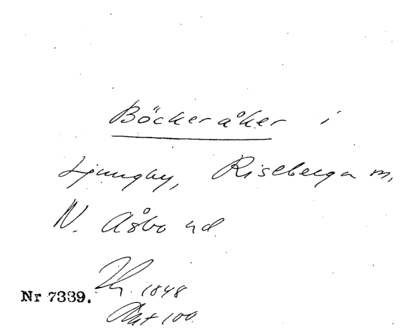 Böckeråker i
Ljungby, Riseberga m,
N. Åsbo hd
1848
Nr 7339.
Akt 100